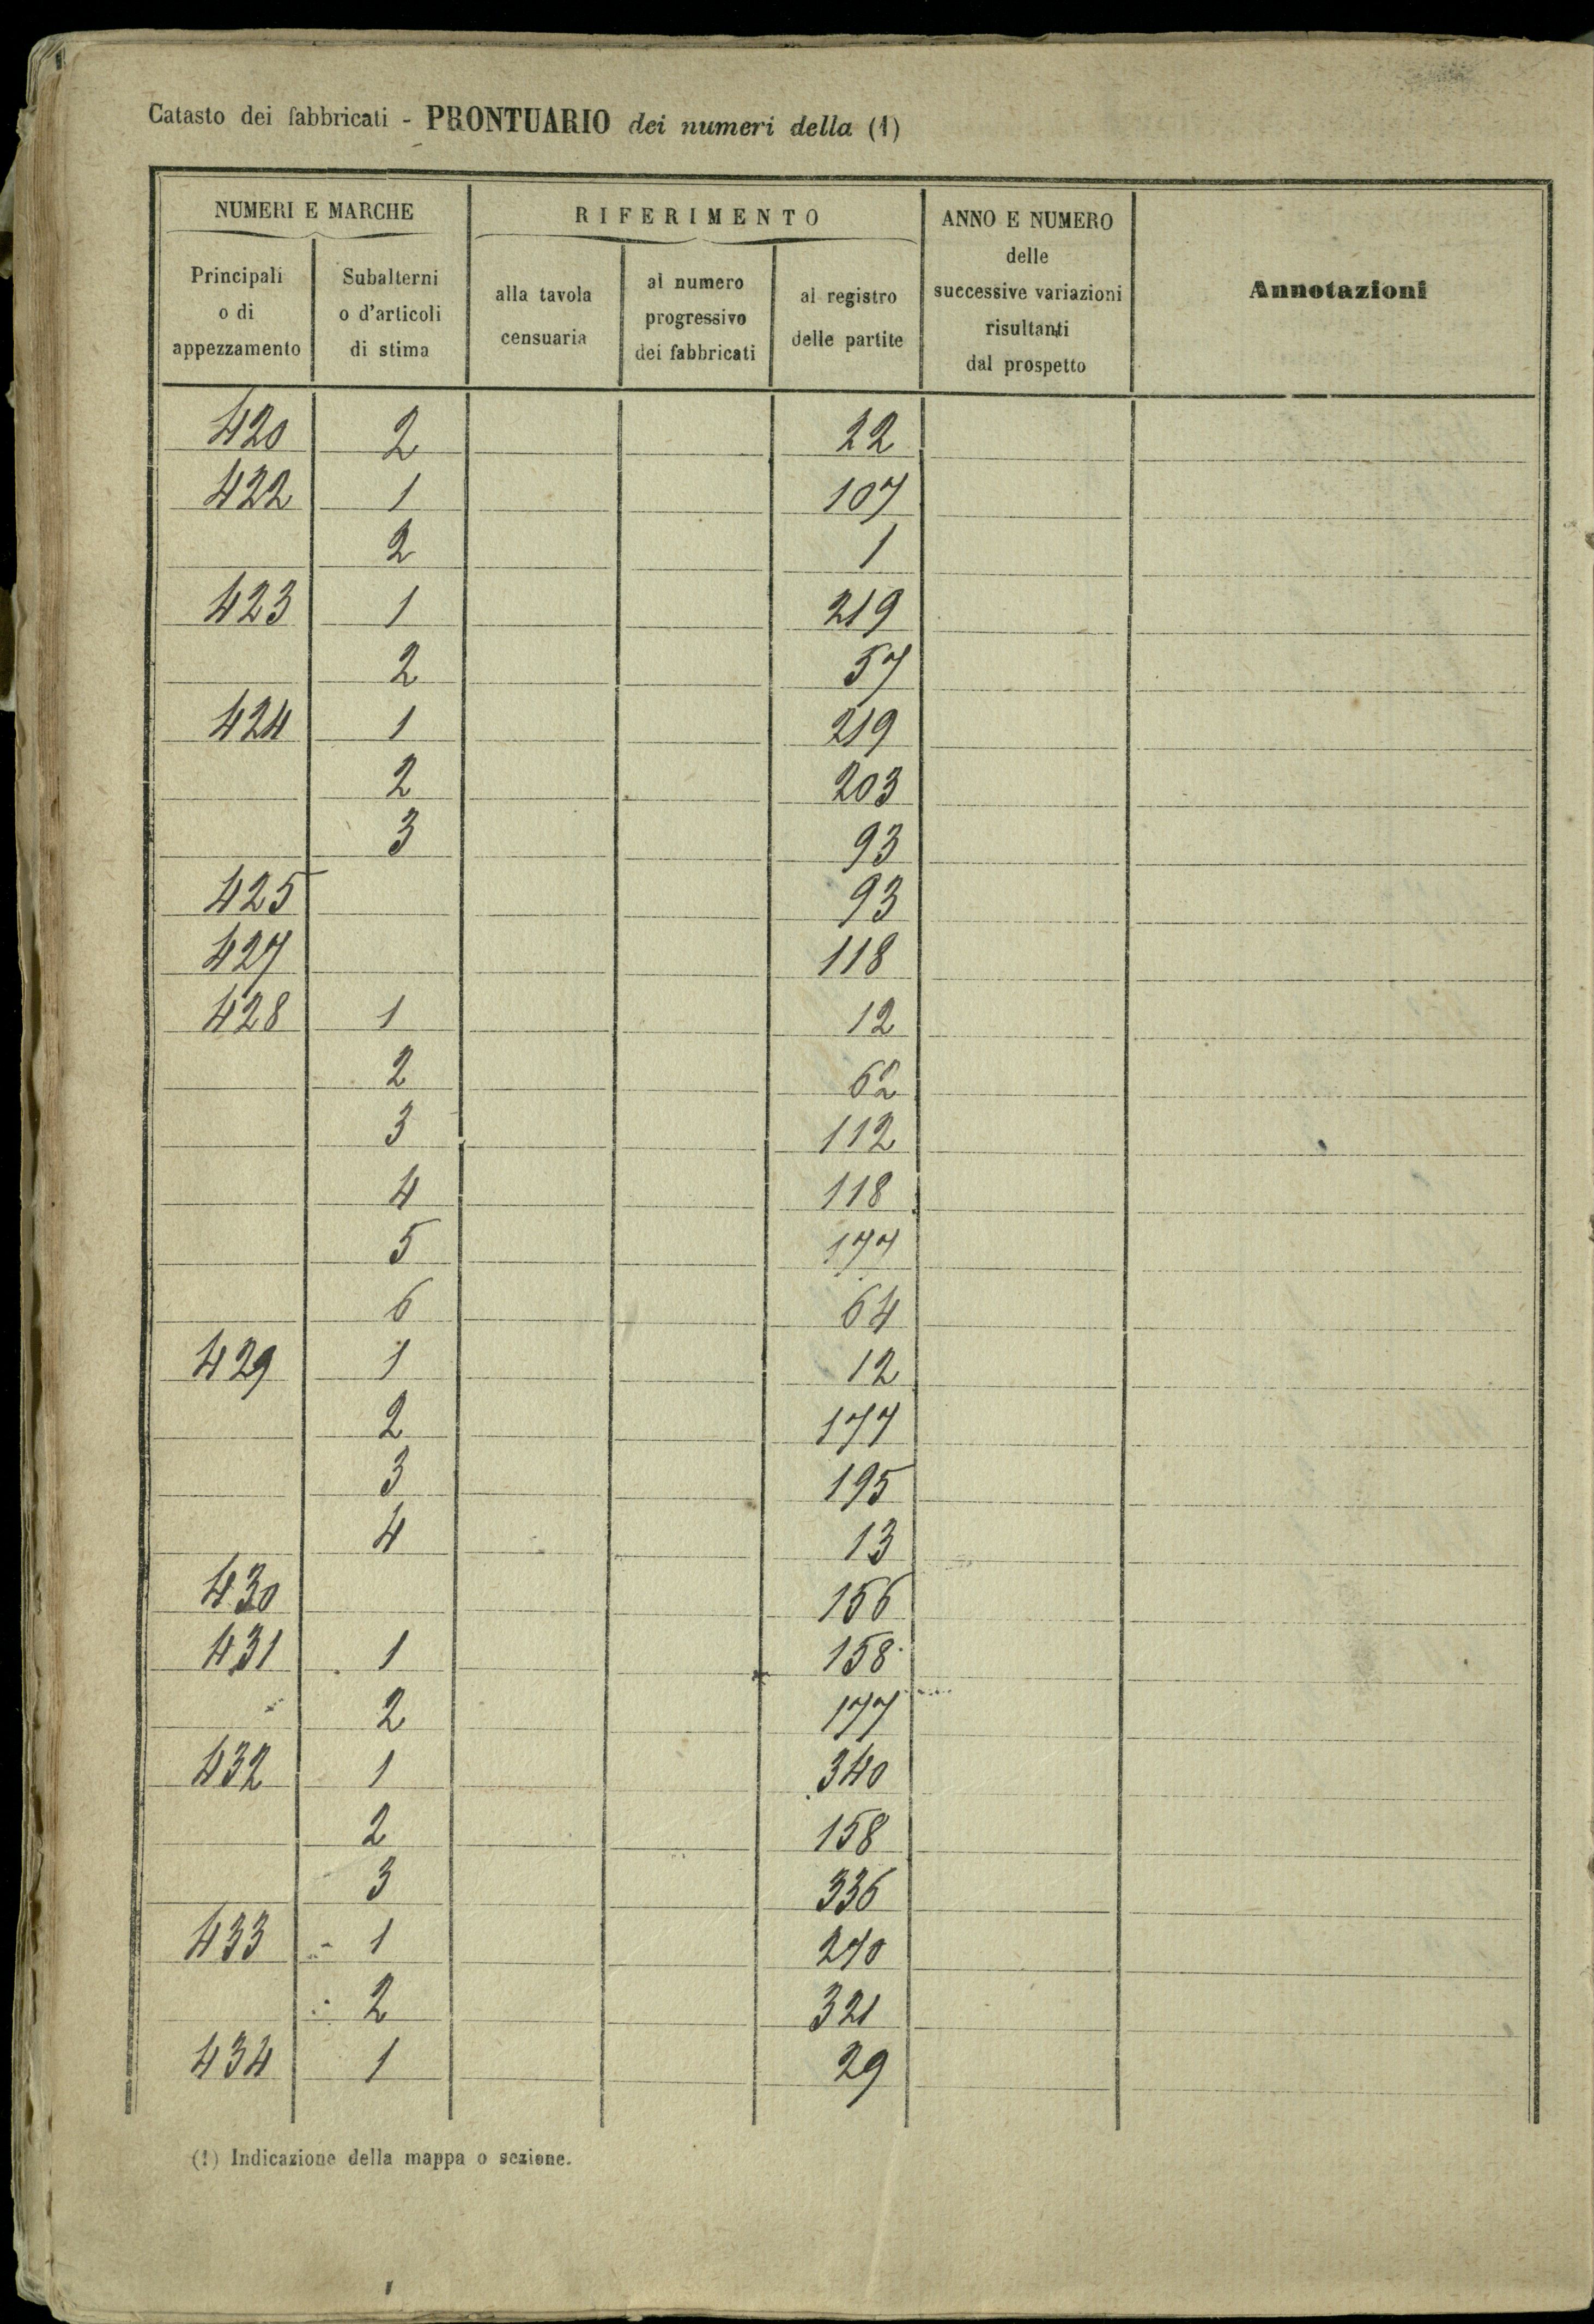 Catasto dei fabbricati - PRONTUARIO dei numeri della (1)
NUMERI E MARCHE
Principali o di appezzamento
Subalterni o d'articoli di stima
RIFERIMENTO
alla tavola censuaria
al numero progressivo dei fabbricati
al registro delle partite
ANNO E NUMERO delle successive variazioni risultanti dal prospetto
Annotazioni
420 2 22
422 1 107
2 1
423 1 219
2 57
424 1 219
2 203
3 93
425 93
427 118
428 1 12
2 62
3 112
4 118
5 177
6 64
429 1 12
2 177
3 195
4 13
430 156
431 1 158
2 177
432 1 340
2 158
3 336
433 1 270
2 321
434 1 29
(1) Indicazione della mappa o sezione.